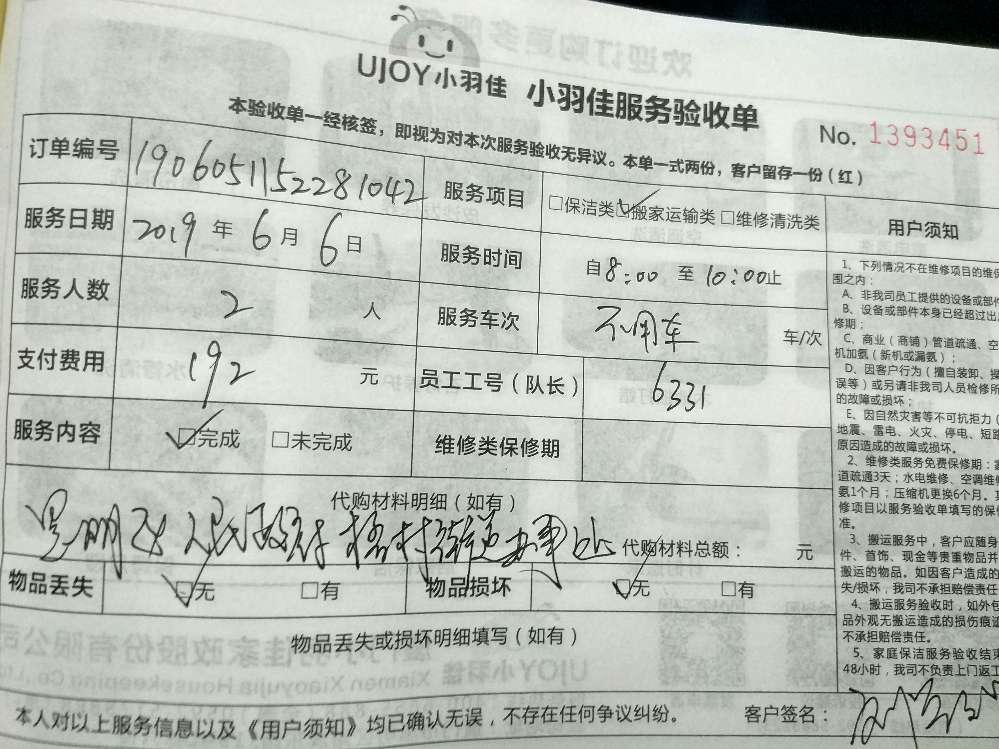 UJOY小羽佳 小羽佳服务验收单
No. 1393451
本验收单一经核签，即视为对本次服务验收无异议。本单一式两份，客户留存一份（红）
订单编号 1906051152281042 服务项目 □保洁类 ☑搬家运输类 □维修清洗类
服务日期 2019 年 6 月 6 日 服务时间 自 8:00 至 10:00 止
服务人数 2 人 服务车次 不用车 车/次
支付费用 192 元 员工工号（队长） 6331
服务内容 ☑完成 □未完成 维修类保修期
代购材料明细（如有）
人民政府 街道办事处 代购材料总额： 元
物品丢失 ☑无 □有 物品损坏 ☑无 □有
物品丢失或损坏明细填写（如有）
本人对以上服务信息以及《用户须知》均已确认无误，不存在任何争议纠纷。 客户签名：
用户须知
1、下列情况不在维修项目的维保
围之内：
A、非我司员工提供的设备或部件
B、设备或部件本身已经超过出
修期；
C、商业（商铺）管道疏通、空
机加氨（新机或漏氨）；
D、因客户行为（擅自装卸、操
误等）或另请非我司人员检修所
的故障或损坏；
E、因自然灾害等不可抗拒力（
地震、雷电、火灾、停电、短路
原因造成的故障或损坏。
2、维修类服务免费保修期：
道疏通3天；水电维修、空调维修
氨1个月；压缩机更换6个月。
修项目以服务验收单填写的保修
准。
3、搬运服务中，客户应随身
件、首饰、现金等贵重物品并
搬运的物品。如因客户造成的
失/损坏，我司不承担赔偿责任
4、搬运服务验收时，如外包
品外观无搬运造成的损伤痕迹
不承担赔偿责任。
5、家庭保洁服务验收结束
48小时，我司不负责上门返工